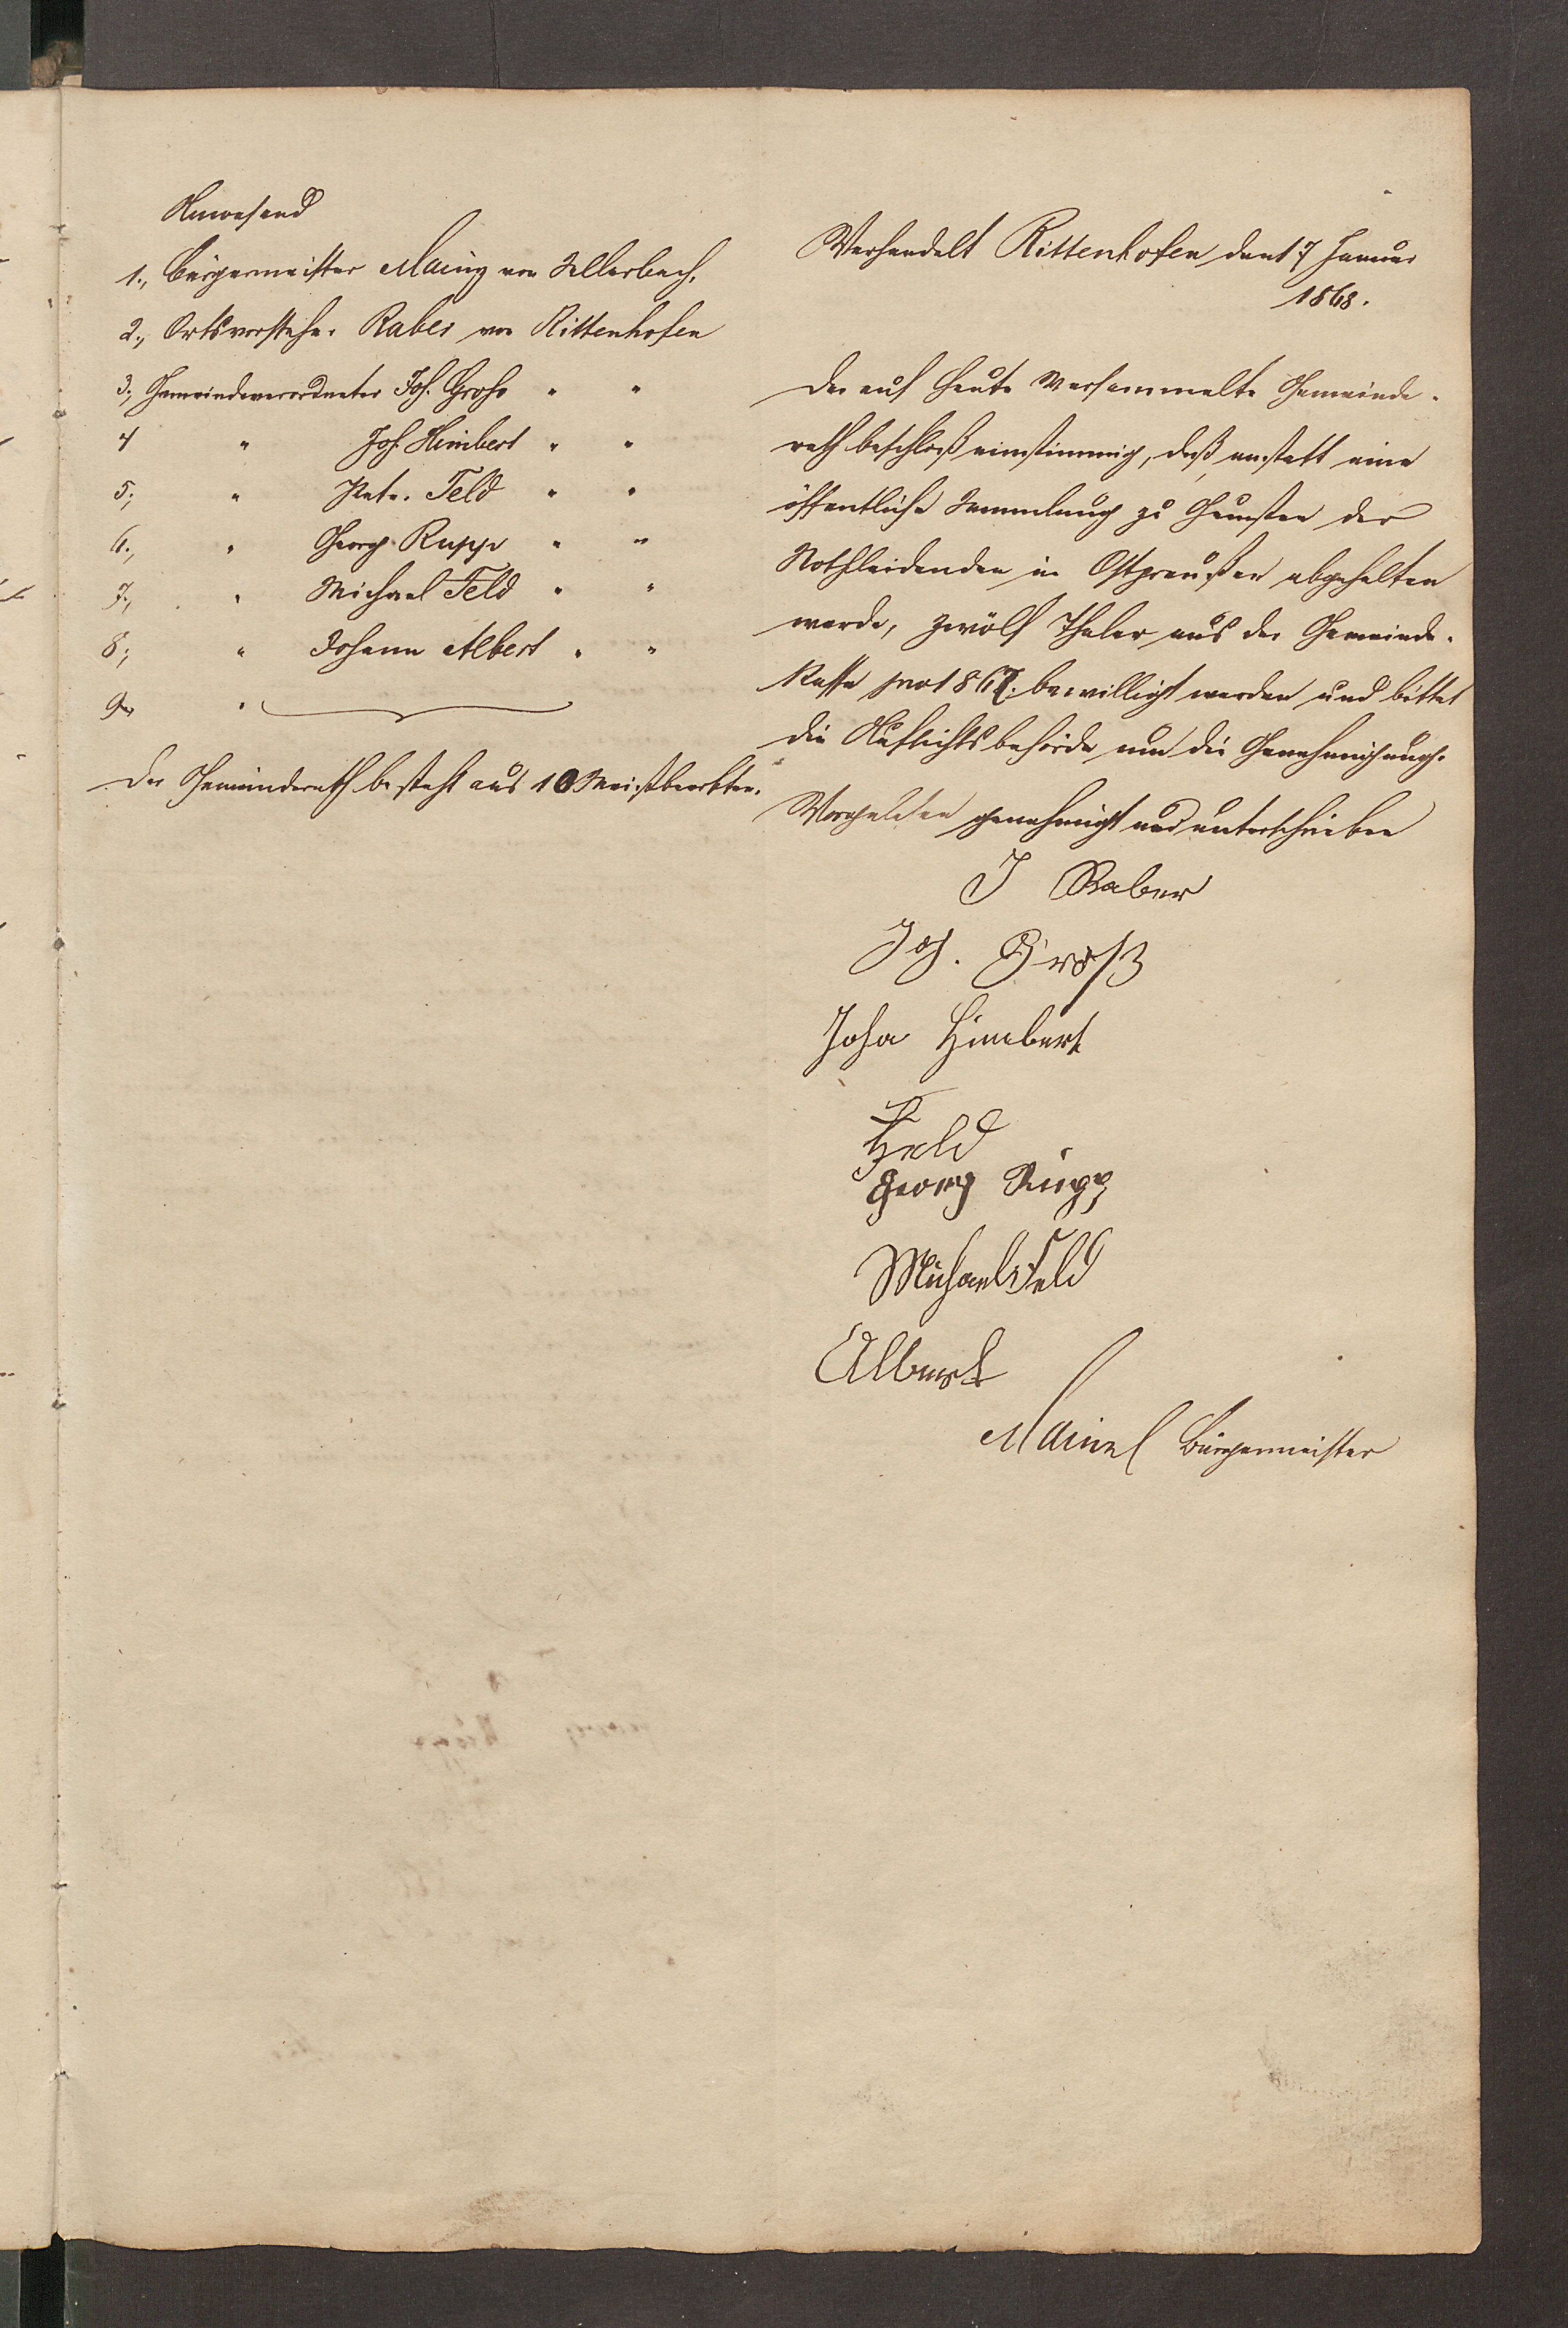 Anwesend
1., Bürgermeister Mainz von Sellerbach,
2., Ortsvorsteher Raber von Rittenhofen
3., Gemeindeverordneter Joh. Groß " "
4 " Joh. Himbert " "
5., " Peter Feld " "
6., " Georg Rupp " "
7., " Michael Feld " "
8., " Johann Albert " "
9., "
Der Gemeinderath besteht aus 10 Meistbeerbten.
Verhandelt Rittenhofen den 17 Januar
1868.
Der auf heute versammelte Gemeinde-
rath beschloß einstimmig, daß, anstatt eine
öffentliche Sammlung zu Gunsten der
Nothleidenden in Ostpreußen abgehalten
werde, zwölf Thaler aus der Gemeinde-
Kasse pro 1867. bewilligt werden und bittet
die Aufsichtsbehörde um die Genehmigung.
Vorgelesen genehmigt und unterschrieben
J Raber
Joh. Groß
Joha Himbert
Feld
Georg Rupp
Michael Feld
Albert
Mainz Bürgermeister